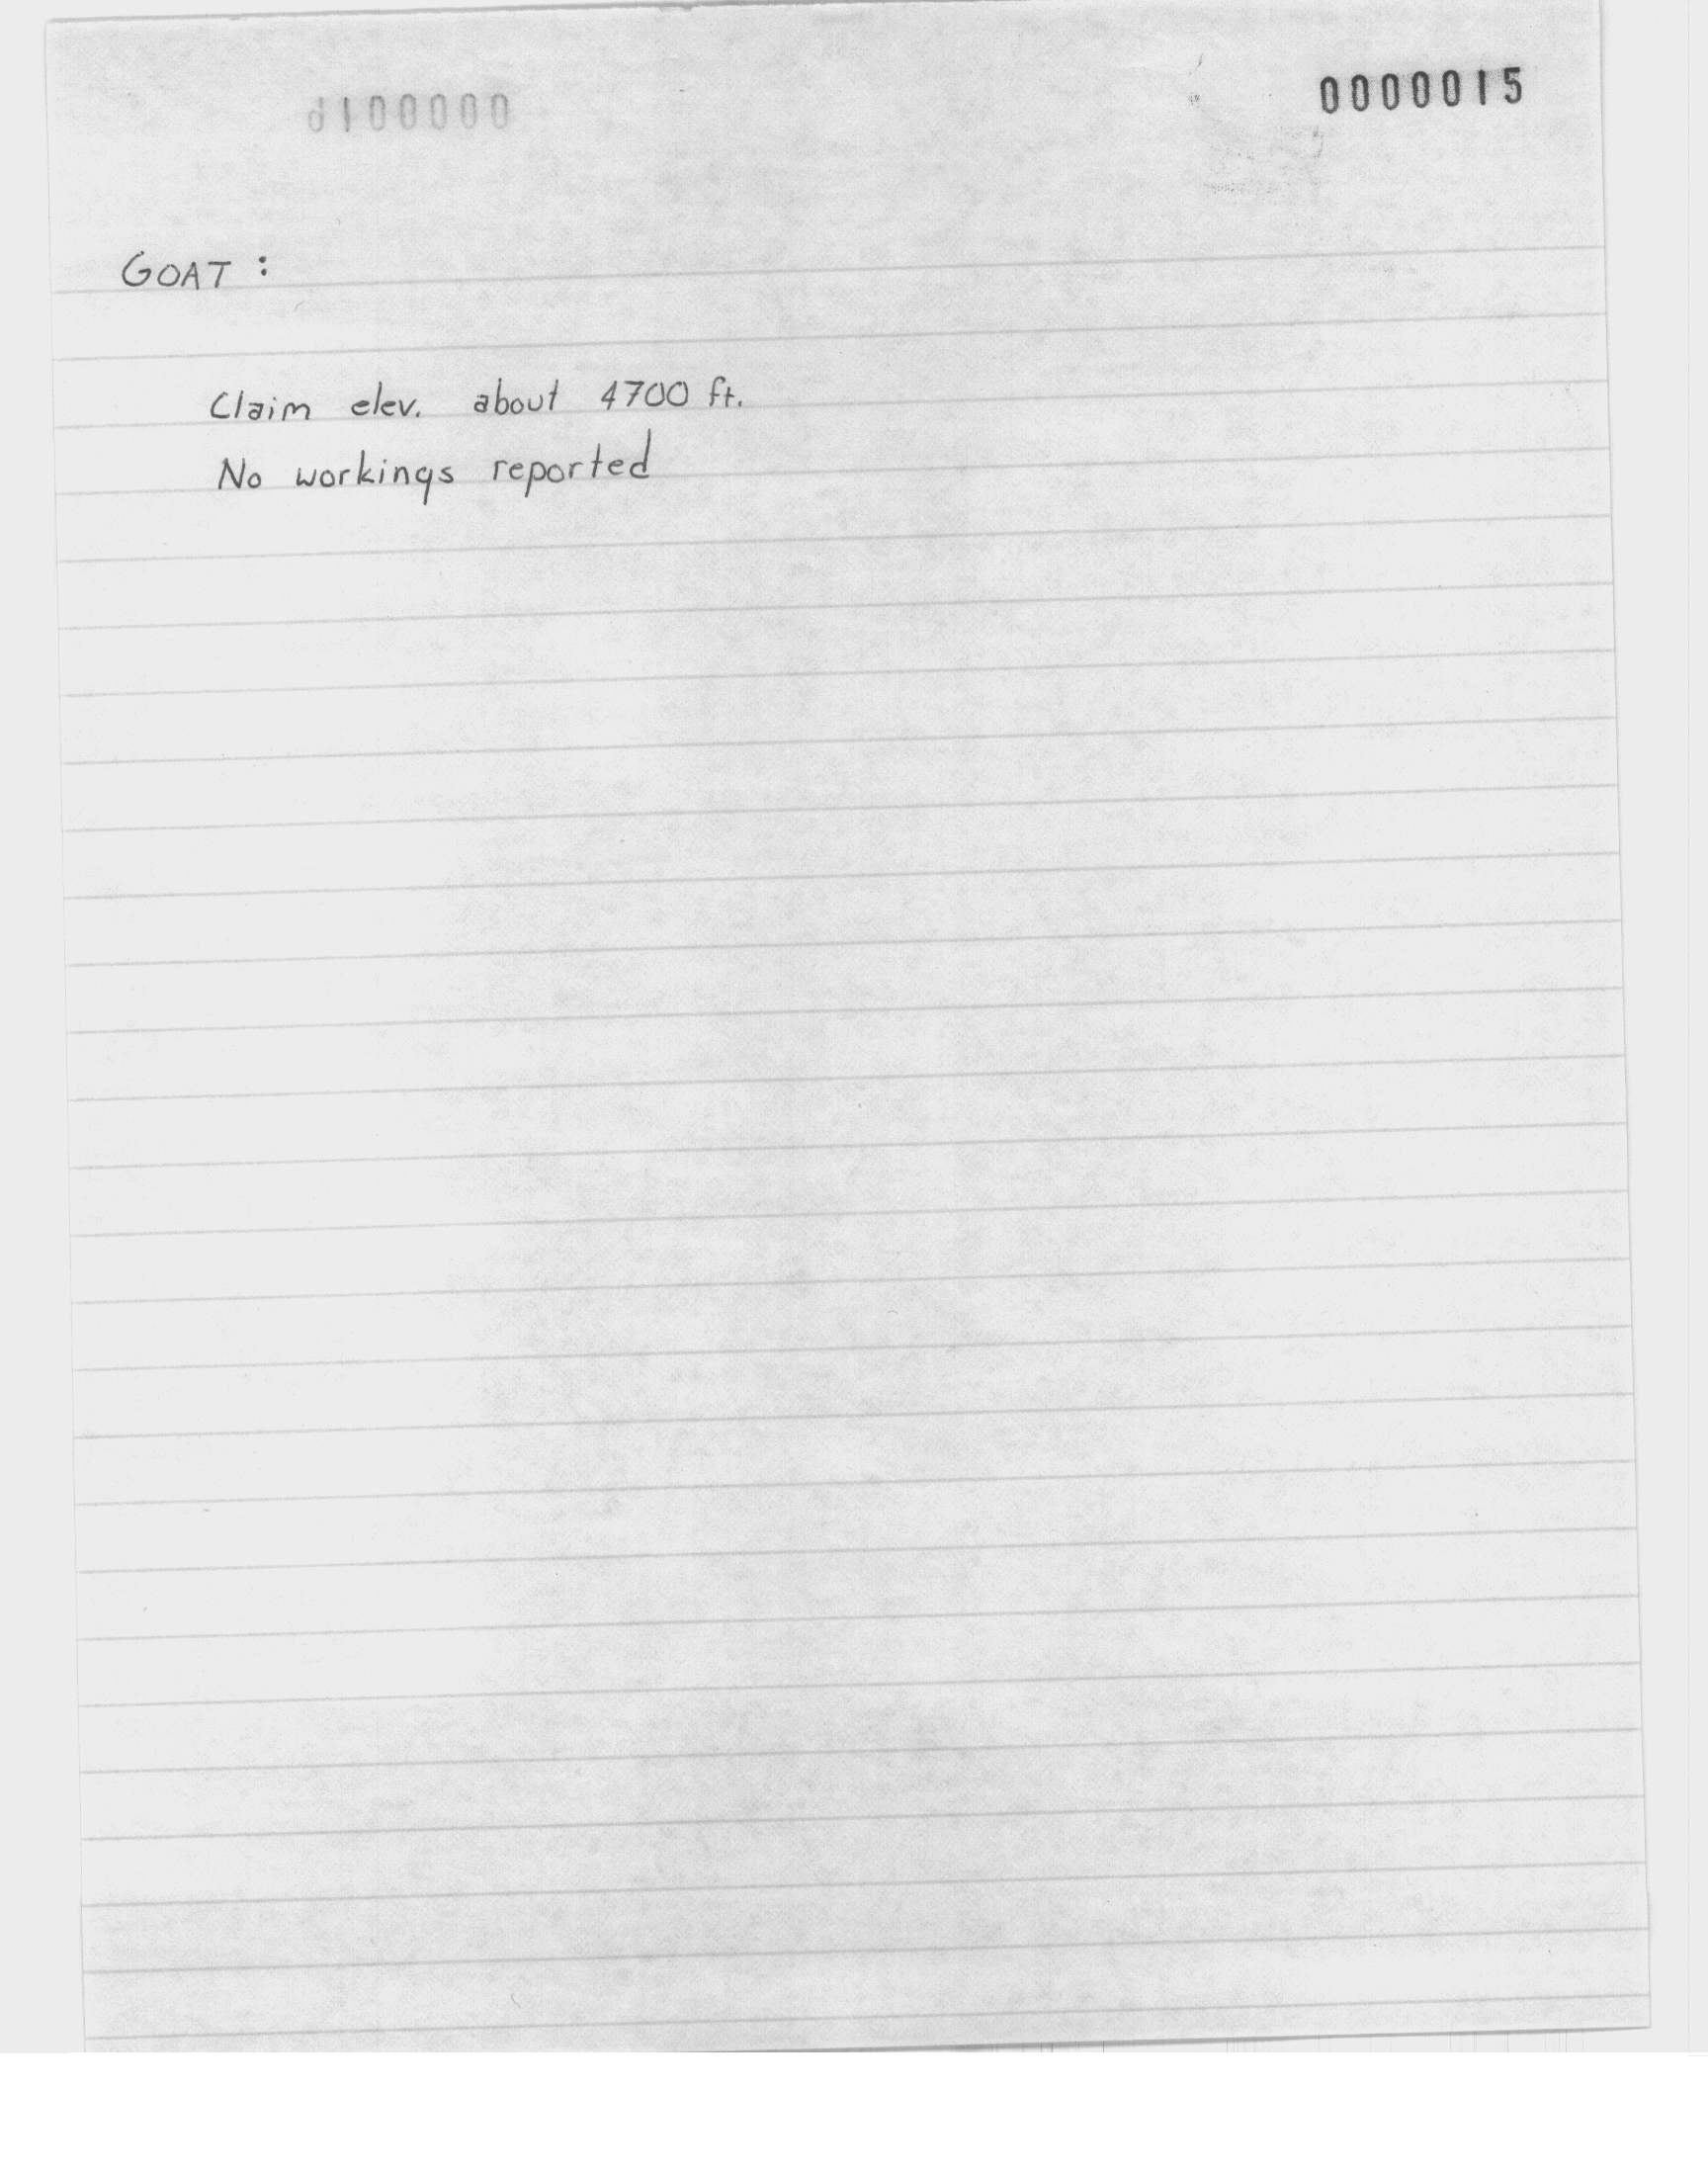 0000015
GOAT :
Claim elev. about 4700 ft.
No workings reported